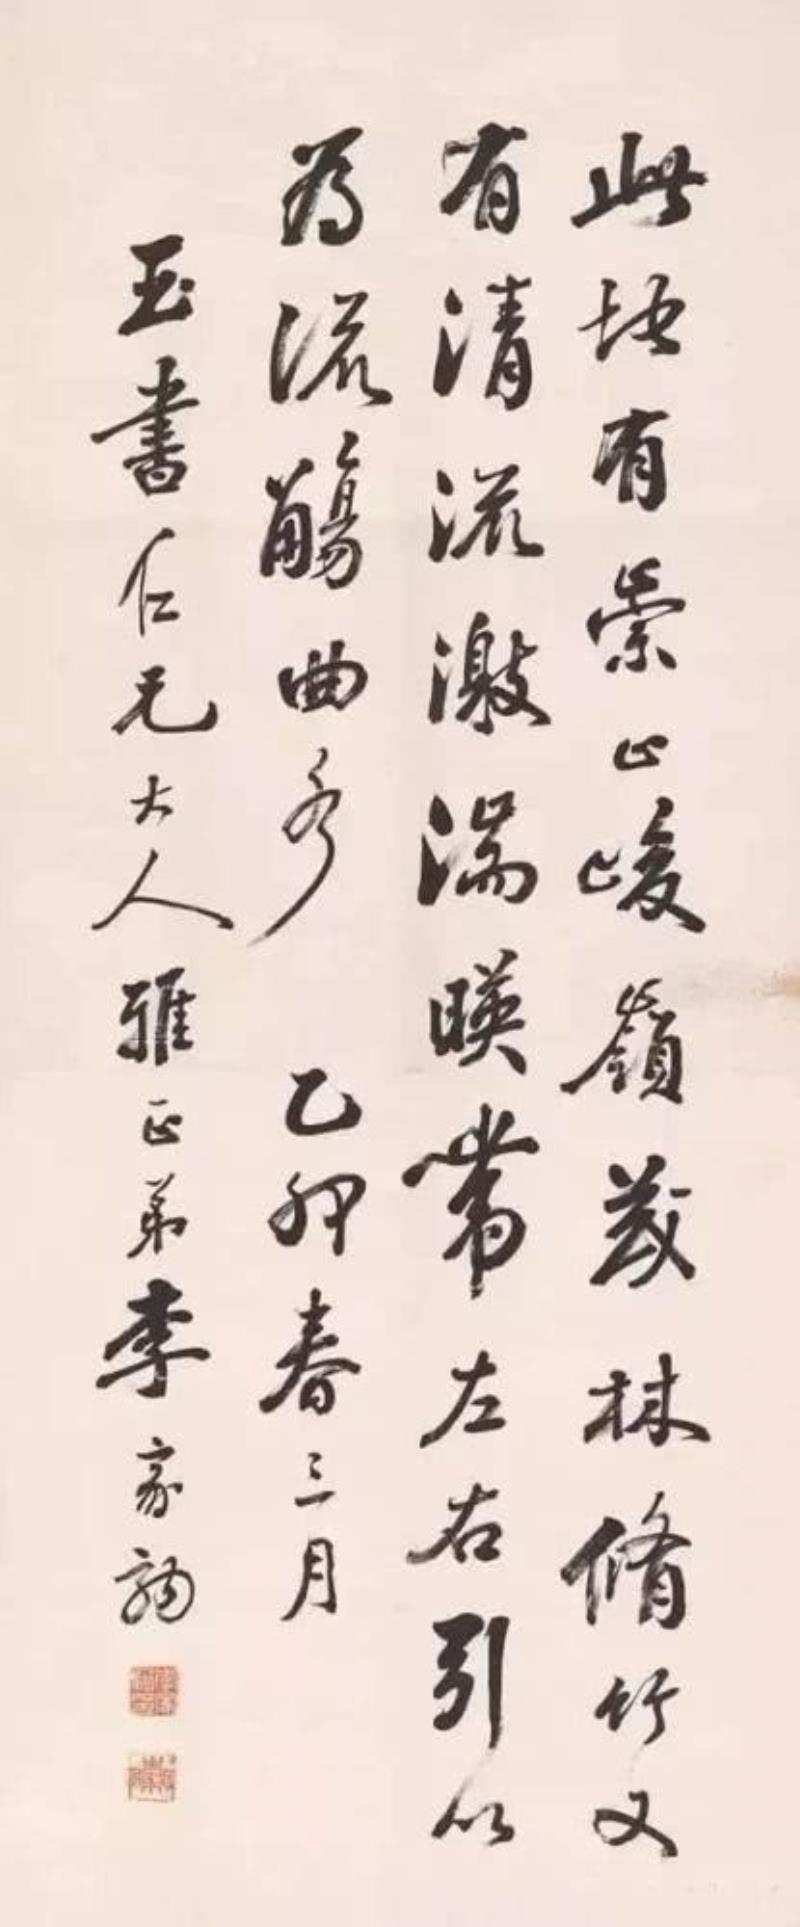 此地有崇山峻領茂林脩竹又
有清流激湍暎帶左右引以
為流觴曲水 乙卯春三月
玉書仁兄大人雅正弟李家駒